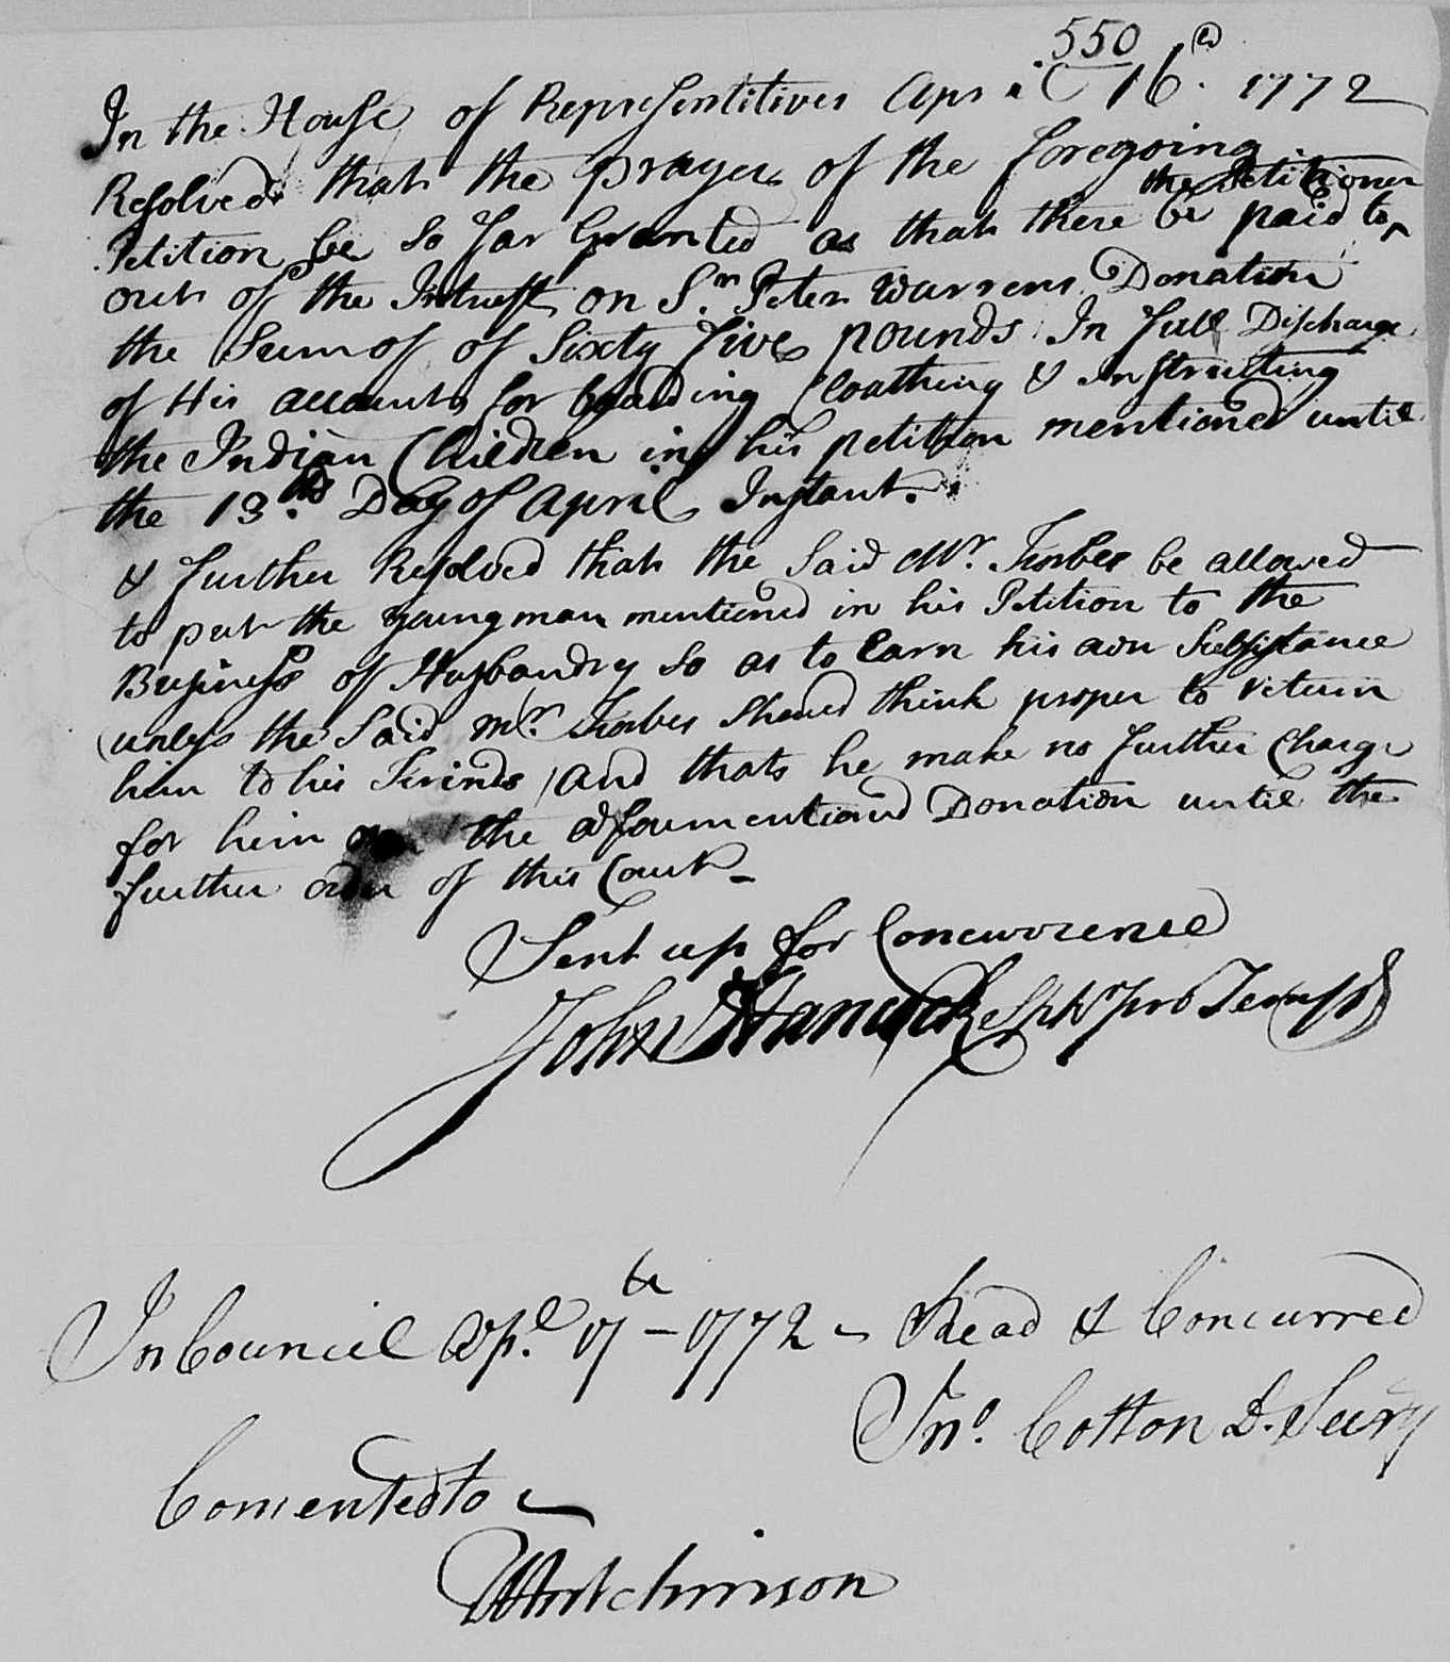 550
In the House of Representitives April 16th. 1772
Resolved that the prayer of the foregoing
Petition be so far Granted as that there be paid to ^ the Petitioner
out of the Intrest on Sr. Peter Warrens Donation
the Sum of of Sixty five pounds In full Discharge
of His account for boarding Cloathing & instructing
the Indian Children in his petition mentioned until
the 13th. Day of April Instant.
& further Resolved that the Said Mr. Forbes be allowed
to put the young man mentioned in his Petition to the
Business of Husbandry so as to Earn his own Subsistance
(unless the Said Mr. Forbes Shoud think proper to return
him to his Frinds) and that he make no further Charge
for him on the aforementiond Donation until the
further order of this Court
Sent up for Concurrence
John Hancock Spkr pro Temp
In Council Apl. 17th - 1772 - Read & Concurred
Jno. Cotton D. Secry
Consented to
T Hutchinson